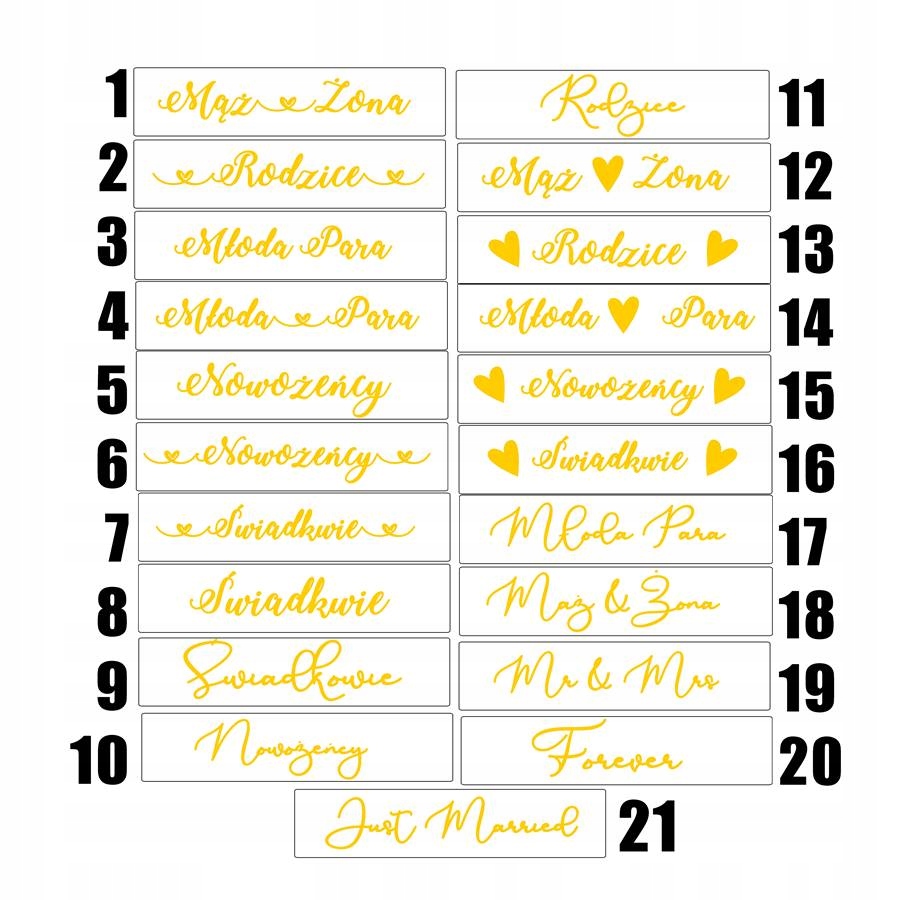 1 Mąż Żona
2 Rodzice
3 Młoda Para
4 Młoda Para
5 Nowożeńcy
6 Nowożeńcy
7 Świadkwie
8 Świadkwie
9 Świadkowie
10 Nowożeńcy
Rodzice 11
Mąż Żona 12
Rodzice 13
Młoda Para 14
Nowożeńcy 15
Świadkwie 16
Młoda Para 17
Mąż & Żona 18
Mr & Mrs 19
Forever 20
Just Married 21